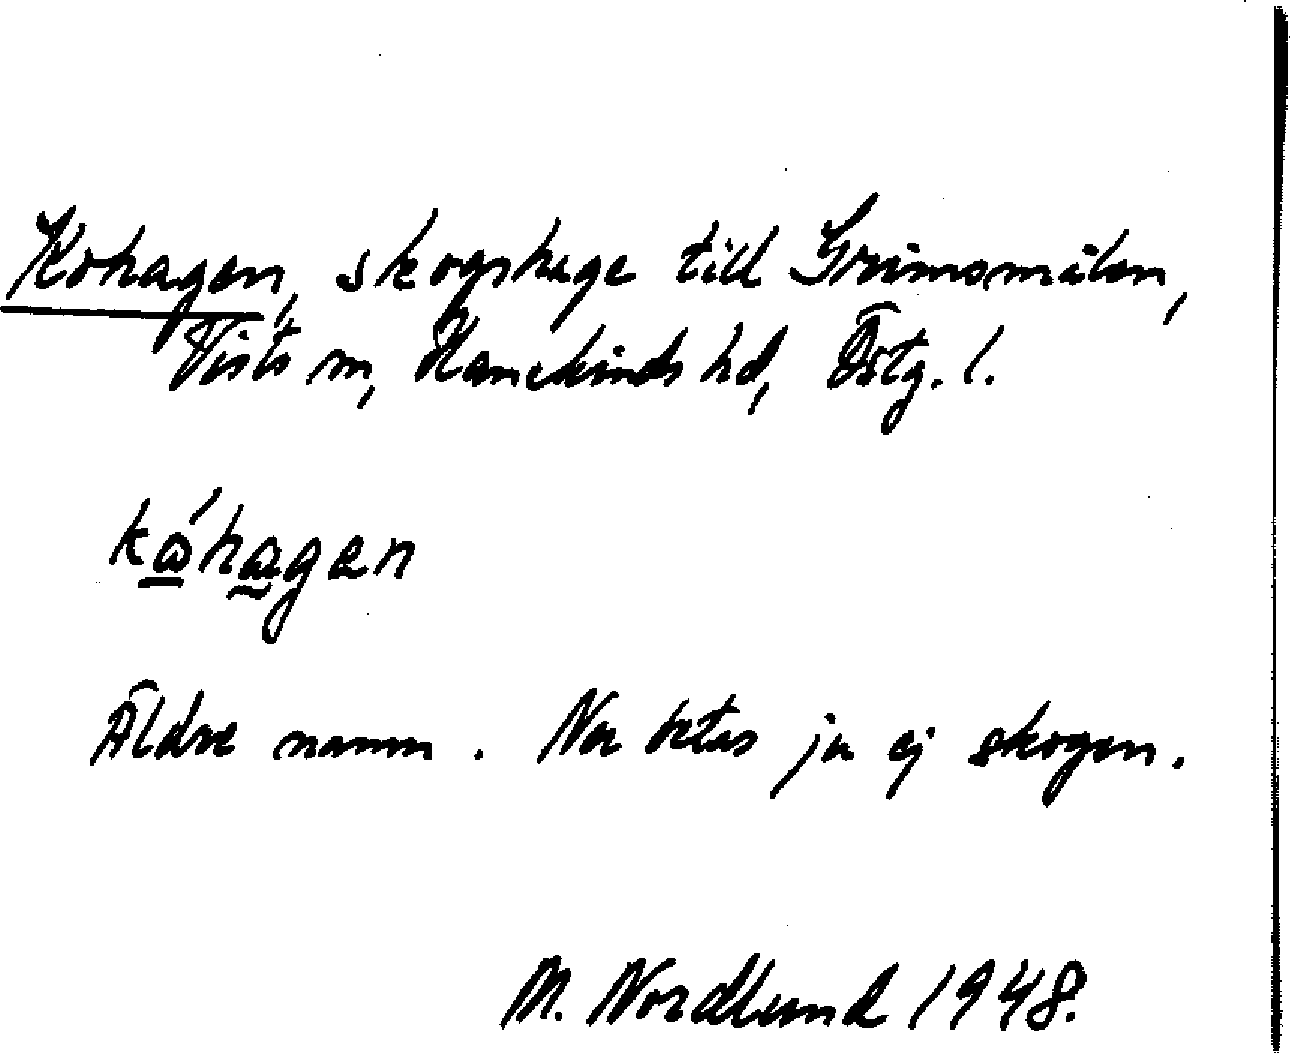 Kohagen, skogshage till Grimsmålen,
Vists sn, Hanekinds hd, Östg. l.
kåhagen
Äldre namn. Nu betas ju ej skogen.
M. Nordlund 1948.